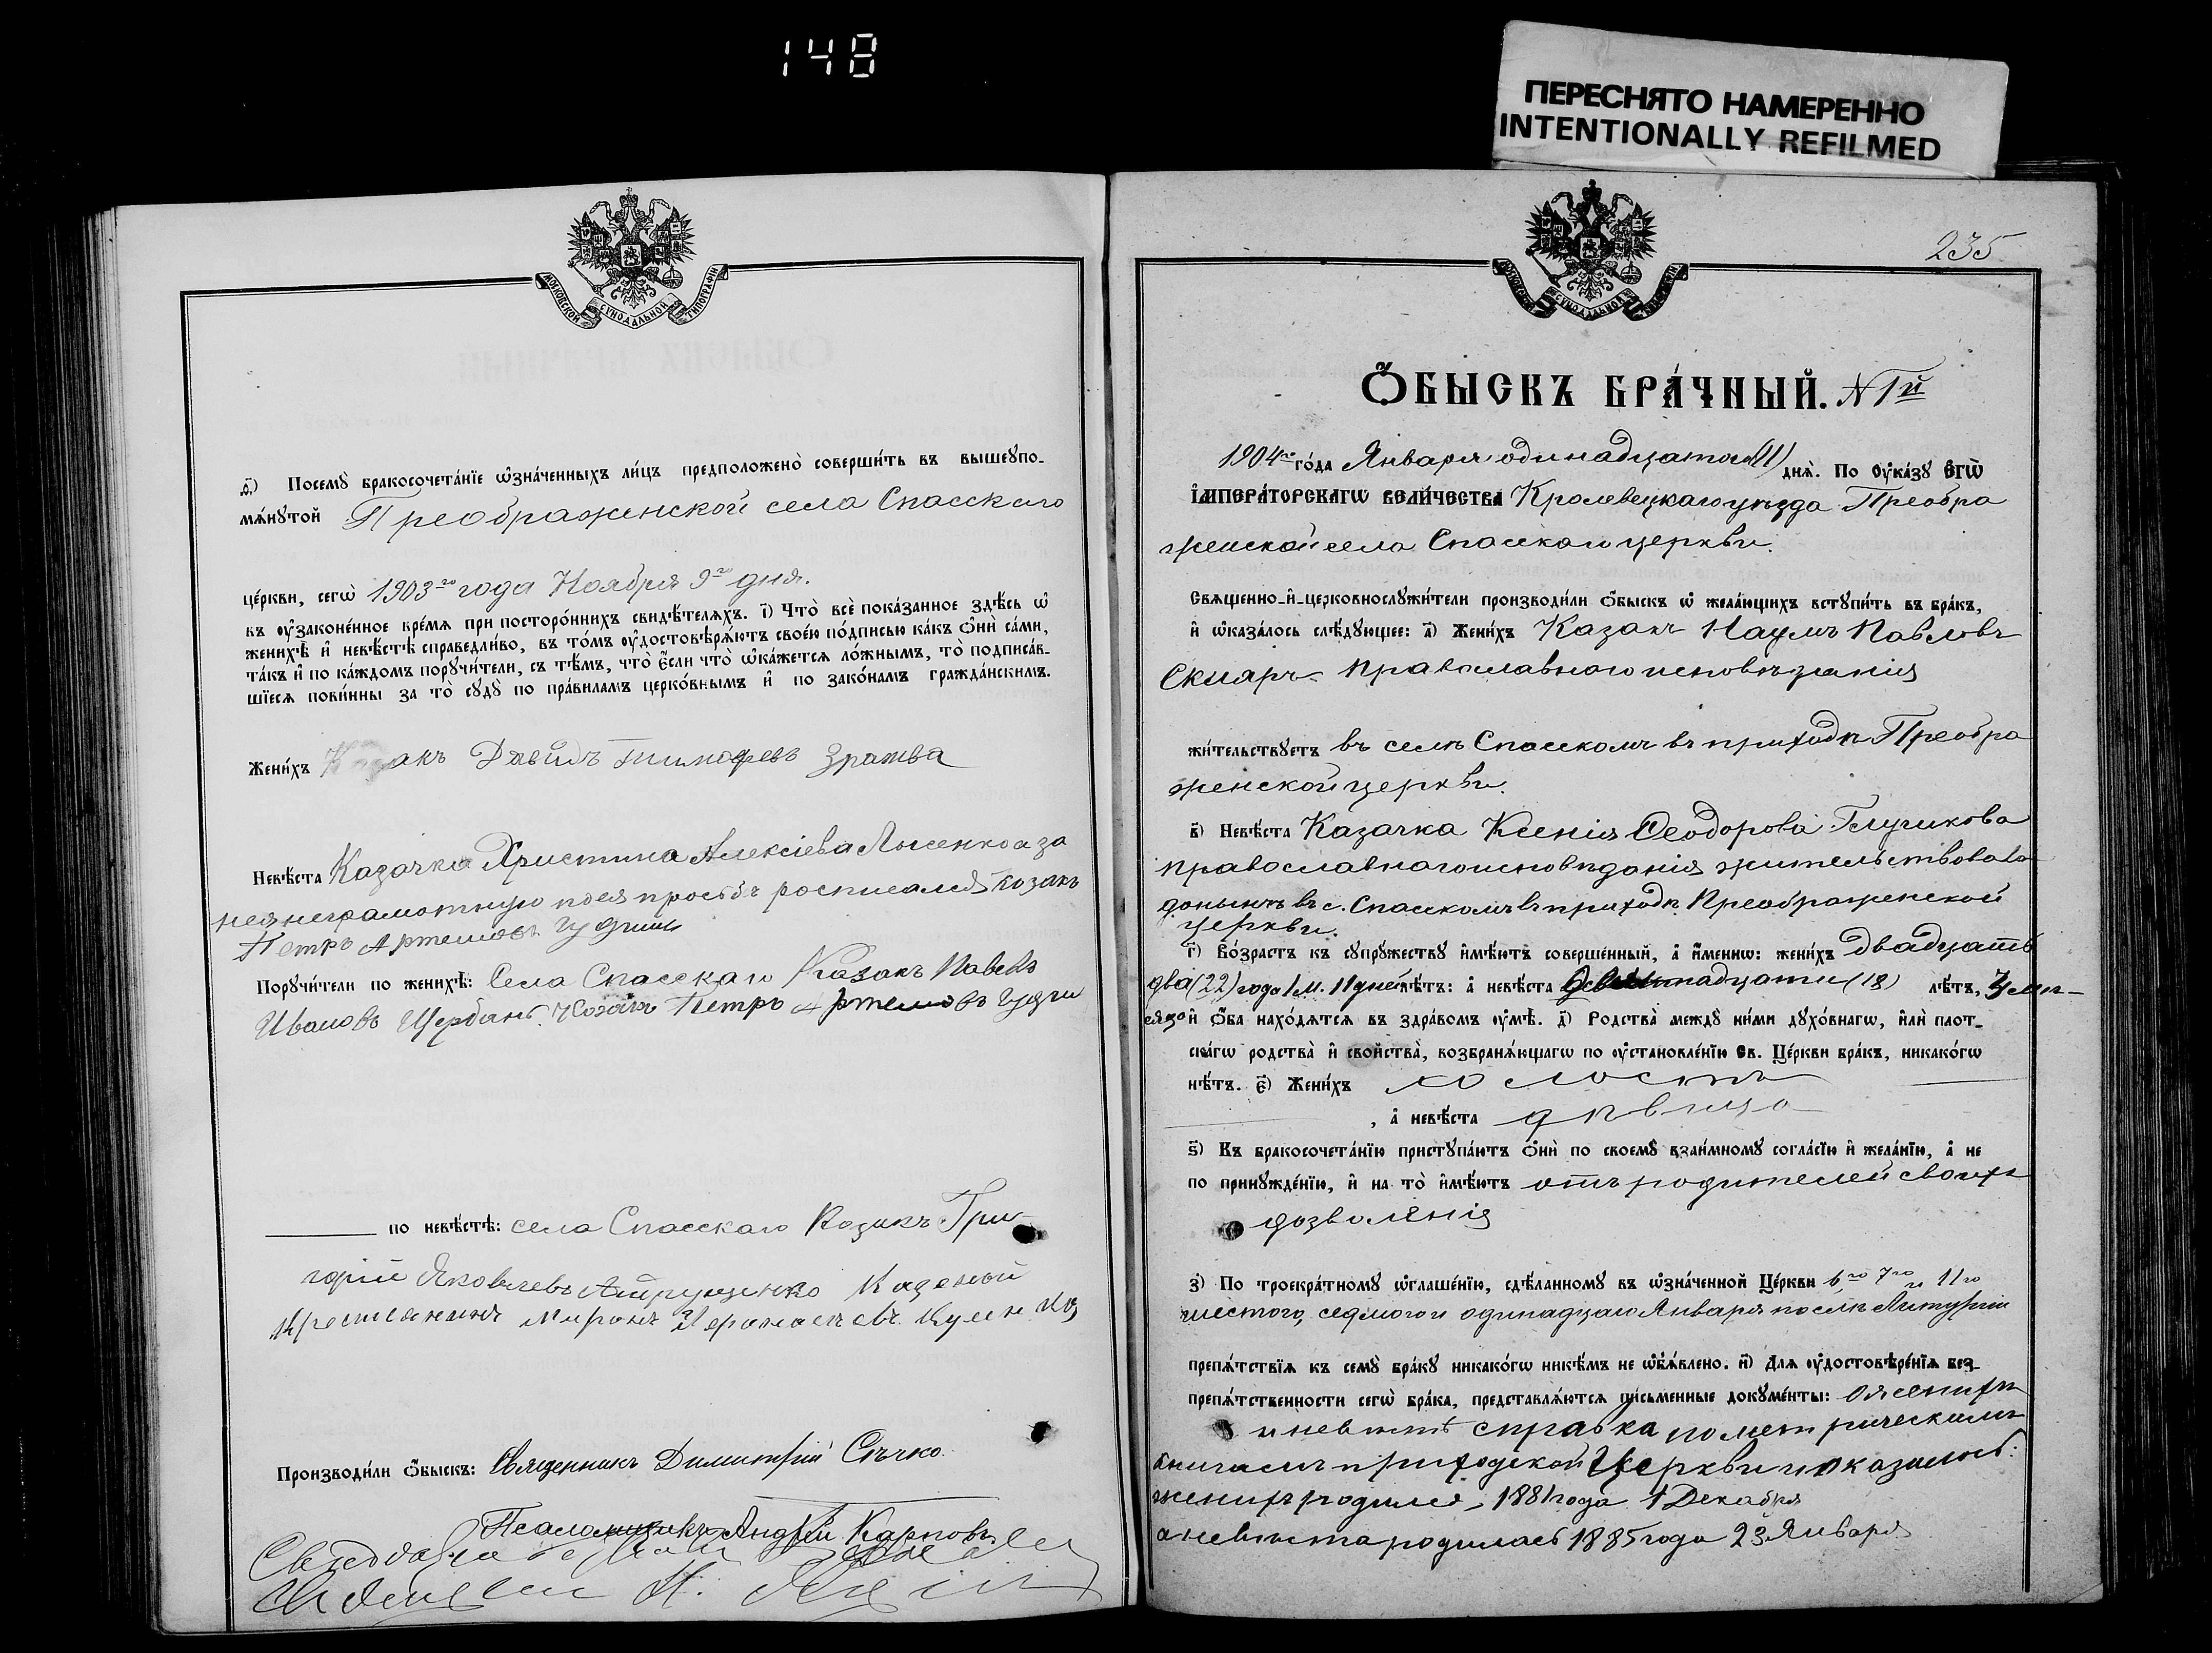 148
ПЕРЕСНЯТО НАМЕРЕННО
INTENTIONALLY REFILMED
МОСКОВСКОЙ СѴНОДАЛЬНОЙ ТИПОГРАФІИ
ѳ҃) Посемꙋ̀ бракосочета́нїе ѡ҆зна́ченныхъ ли́цъ предположено̀ соверши́ть въ вышеꙋпо-
мѧ́нꙋтой Преображенской села Спасскаго
це́ркви, сегѡ̀ 1903го года Ноября 9го дня.
въ ᲂу҆законе́нное вре́мѧ при посторо́ннихъ свидѣ́телѧхъ. і҃) Что̀ всѐ пока́занное здѣ́сь ѡ҆
женихѣ̀ и҆ невѣ́стѣ справедли́во, въ то́мъ ᲂу҆достовѣрѧ́ютъ свое́ю по́дписью ка́къ ѻ҆нѝ са́ми,
та́къ и҆ по ка́ждомъ порꙋчи́тели, съ тѣ́мъ, что̀ є҆́сли что̀ ѡ҆ка́жетсѧ ло́жнымъ, то̀ подписа́в-
шїесѧ пови́нны за то̀ сꙋдꙋ̀ по пра́виламъ церко́внымъ и҆ по зако́намъ гражда́нскимъ.
Жени́хъ Казакъ Давидъ Тимофеевъ Зратва
Невѣ́ста Казачка Христина Алексіева Лысенко а за
нея неграмотную по ея просьбѣ росписался козакъ
Петръ Артемовъ
Порꙋчи́тели по женихѣ̀: Села Спасскаго Казакъ Павелъ
Ивановъ Щербань. Козакъ Петръ Артемовъ
по невѣ́стѣ: села Спасскаго Козакъ Гри-
горій Яковлевъ Андрущенко Казеной
Крестьянинъ Миронъ
Производи́ли ѻ҆́быскъ: Священникъ Димитрій Сѣчко
Псаломщикъ Андрей Карповъ
МОСКОВСКОЙ СѴНОДАЛЬНОЙ ТИПОГРАФІИ
235
Ѻ҆́БЫСКЪ БРА́ЧНЫЙ. N 1й
1904го го́да Января одинадцатаго (11) днѧ̀. По Оу҆ка́зꙋ Є҆гѡ̀
І҆мпера́торскагѡ Вели́чества Кролевецкаго уѣзда Преобра
женской села Спасскаго церкви.
Свѧщенно-и҆-церковнослꙋжи́тели производи́ли ѻ҆́быскъ ѡ҆ жела́ющихъ встꙋпи́ть въ бра́къ,
и҆ ѡ҆каза́лось слѣ́дꙋющее: а҃) Жени́хъ Казакъ Наумъ Павловъ
Скляръ православнаго исповѣданія
жи́тельствꙋетъ въ селѣ Спасскомъ въ приходѣ Преобра
женской церкви.
в҃) Невѣ́ста Казачка Ксенія Ѳеодорова Глушкова
православнаго исповѣданія жительствовала
донынѣ въ с. Спасскомъ въ приходѣ Преображенской
церкви.
г҃) Во́зрастъ къ сꙋпрꙋ́жествꙋ и҆мѣ́ютъ соверше́нный, а҆ и҆́меннѡ: жени́хъ двадцать
два (22) года 1 м. 11 дней лѣ́тъ: а҆ невѣ́ста надцати (18) лѣ́тъ, мѣ-
сяцо и҆ ѻ҆́ба нахо́дѧтсѧ въ здра́вомъ ᲂу҆мѣ̀. д҃) Родства̀ междꙋ ни́ми дꙋхо́внагѡ, и҆лѝ плот-
ска́гѡ родства̀ и҆ сво́йства̀, возбранѧ́ющагѡ по ᲂу҆становле́нїю Св. Це́ркви бра́къ, никако́гѡ
нѣ́тъ. є҃) Жени́хъ холостъ
, а҆ невѣ́ста дѣвица
ѕ҃) Къ бракосочета́нїю пристꙋпа́ютъ ѻ҆нѝ по своемꙋ̀ взаи́мномꙋ согла́сїю и҆ жела́нїю, а҆ не
по принꙋжде́нїю, и҆ на то̀ и҆мѣ́ютъ отъ родителей своихъ
дозволенія
з҃) По троекра́тномꙋ ѡ҆глаше́нїю, сдѣ́ланномꙋ въ ѡ҆зна́ченной Це́ркви 6го 7го и 11го
шестого, седмого и одинадцаго Января послѣ Литургіи
препѧ́тствїѧ къ семꙋ̀ бра́кꙋ никако́гѡ никѣ́мъ не ѡ҆б̾ѧ́влено. и҃) Длѧ ᲂу҆достовѣре́нїѧ без-
препѧ́тственности сегѡ̀ бра́ка, представлѧ́ютсѧ пи́сьменные докꙋме́нты: О женихѣ
и невѣстѣ справка по метрическимъ
книгамъ приходской Церкви и оказалось:
женихъ родился 1881 года 1 Декабря
а невѣста родилась 1885 года 23 Января